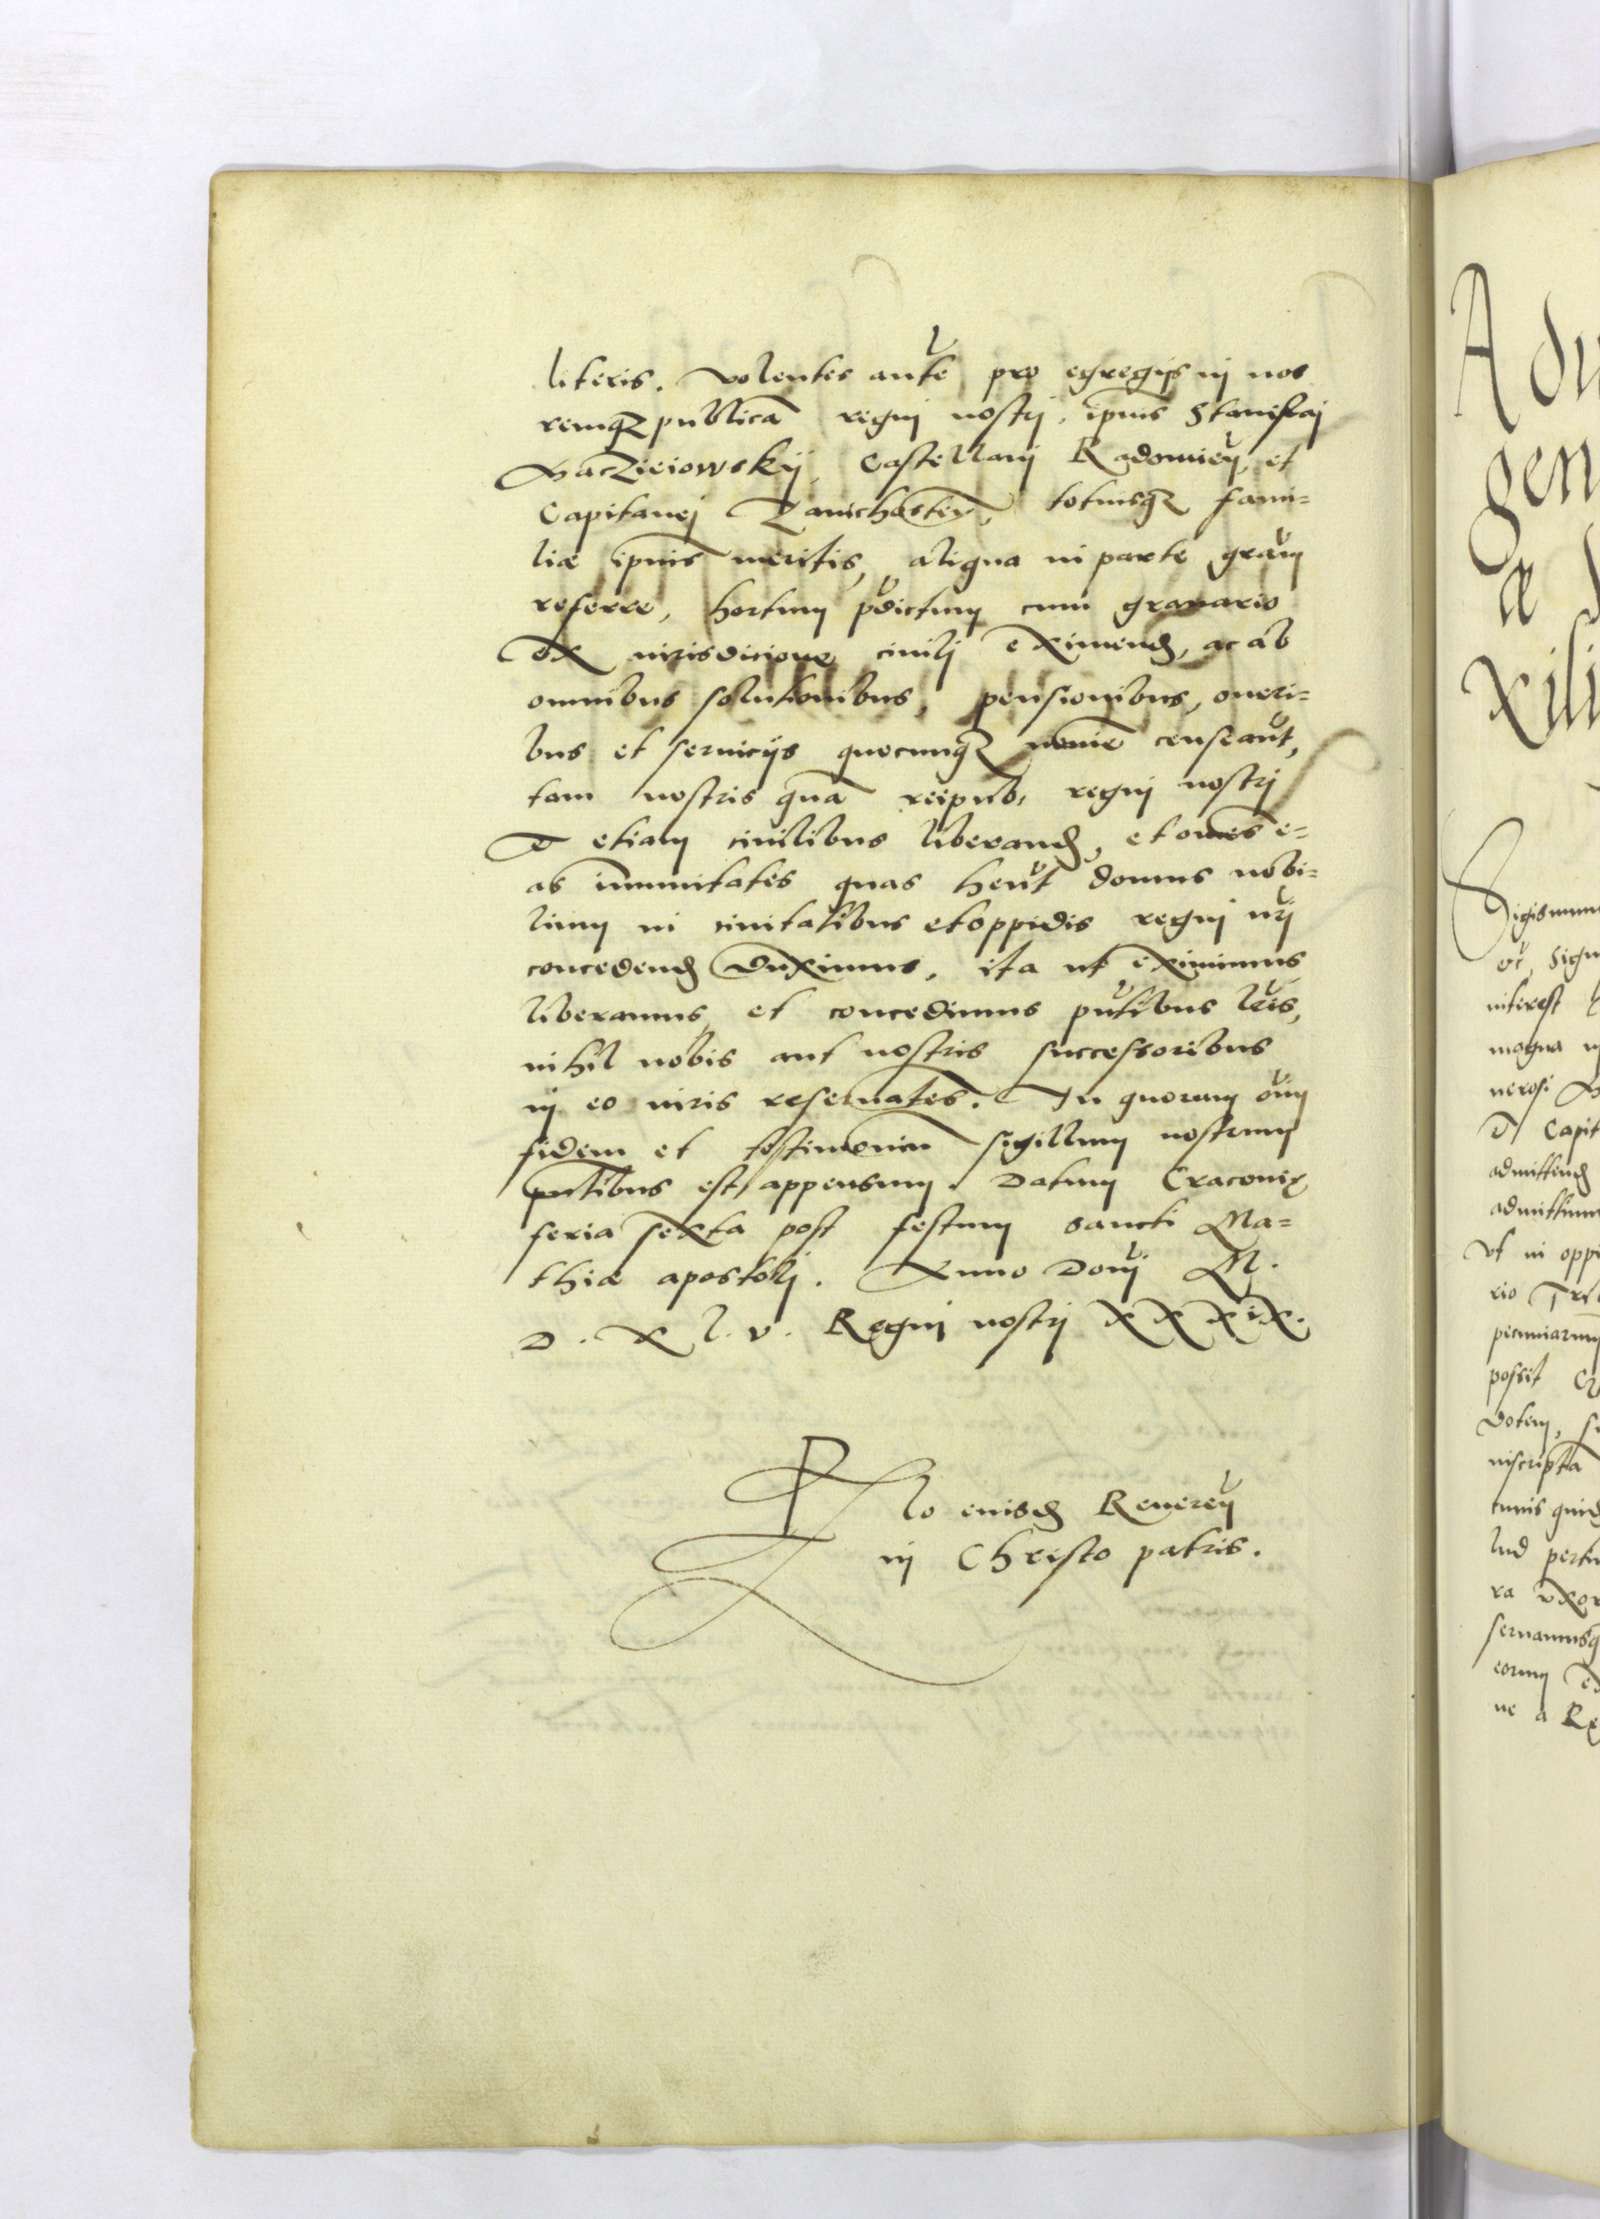 literis. Volentes aute pro egregijs in nos
remqz publica regni nostri, ipius Stanislai
Maczieiowskij, Castellani Radomien, et
Capitanej Zawichosten, totiusqz fami=
liæ ipius meritis, aliqua in parte gram
referre, hortum pdictum cum granario
ex iurisdicione ciuilj eximend, ac ab
omnibus solutionibus, pensionibus, oneri=
bus et seruicijs quocunqz nomie censeant,
tam nostris qua reipub. regni nostri
et etiam ciuilibus liberand, et omes e=
as immunitates quas hent domus nobi=
lium in ciuitatibus et oppidis regni nri
concedend duximus, ita ut eximimus
liberamus, et concedimus pntibus lris,
nihil nobis aut nostris successoribus
in eo iuris reseruates. In quorum oim
fidem et testimoniu sigillum nostrum
pntibus est appensum. Datum Cracouiæ
feria sexta post festum sancti Ma=
thiæ apostolj. Anno Domi M.
D. X L. V. Regni nostri XXXIX.
Rlo eiusd Reueren
in Christo patris.
Adu
gen
æ
xili
Sigismun
etc. Sign
interest
magna
nerosi
Capit
admittend
admittim
Vt in oppi
rio
pecuniarum
possit
dotem,
inscripta
cuius quid
lud pertin
ra vxor
seruamusq
eorum
ne a Re